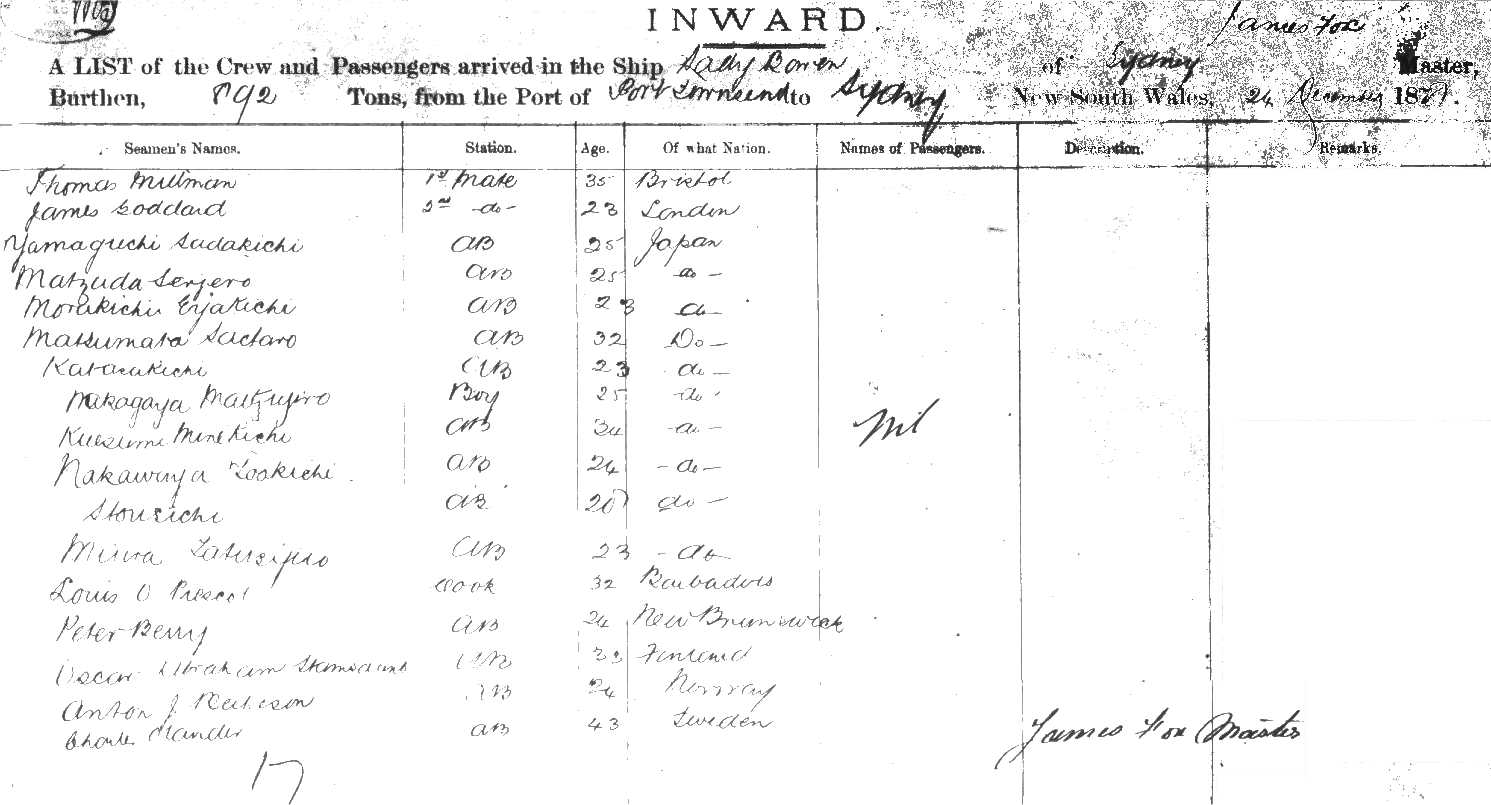 INWARD.
James Fox
A LIST of the Crew and Passengers arrived in the Ship Lady Bowen of Sydney Master,
Burthen, 892 Tons, from the Port of Port Townsend to Sydney New South Wales, 24 December 187
Seamen's Names. Station. Age. Of what Nation. Names of Passengers. Description. Remarks.
Thomas Millman 1st Mate 35 Bristol
James Goddard 2nd -do- 23 London
Yamaguchi Sadakichi AB 25 Japan
Matzuda Senjero AB 25 do -
Morikichi Eijakichi AB 23 do -
Matsumata Sactaro AB 32 Do -
AB 23 do -
Nakagaya Boy 25 do
Minekichi AB 34 -do-
Nakawaya AB 24 -do-
AB 20 do -
Miwa AB 23 -do-
Louis O Prescot Cook 32 Barbadoes
Peter Berry AB 24 New Brunswick
Oscar Abraham AB 23 Finland
Anton J AB 24 Norway
Charles AB 43 Sweden
Nil
James Fox Master
17